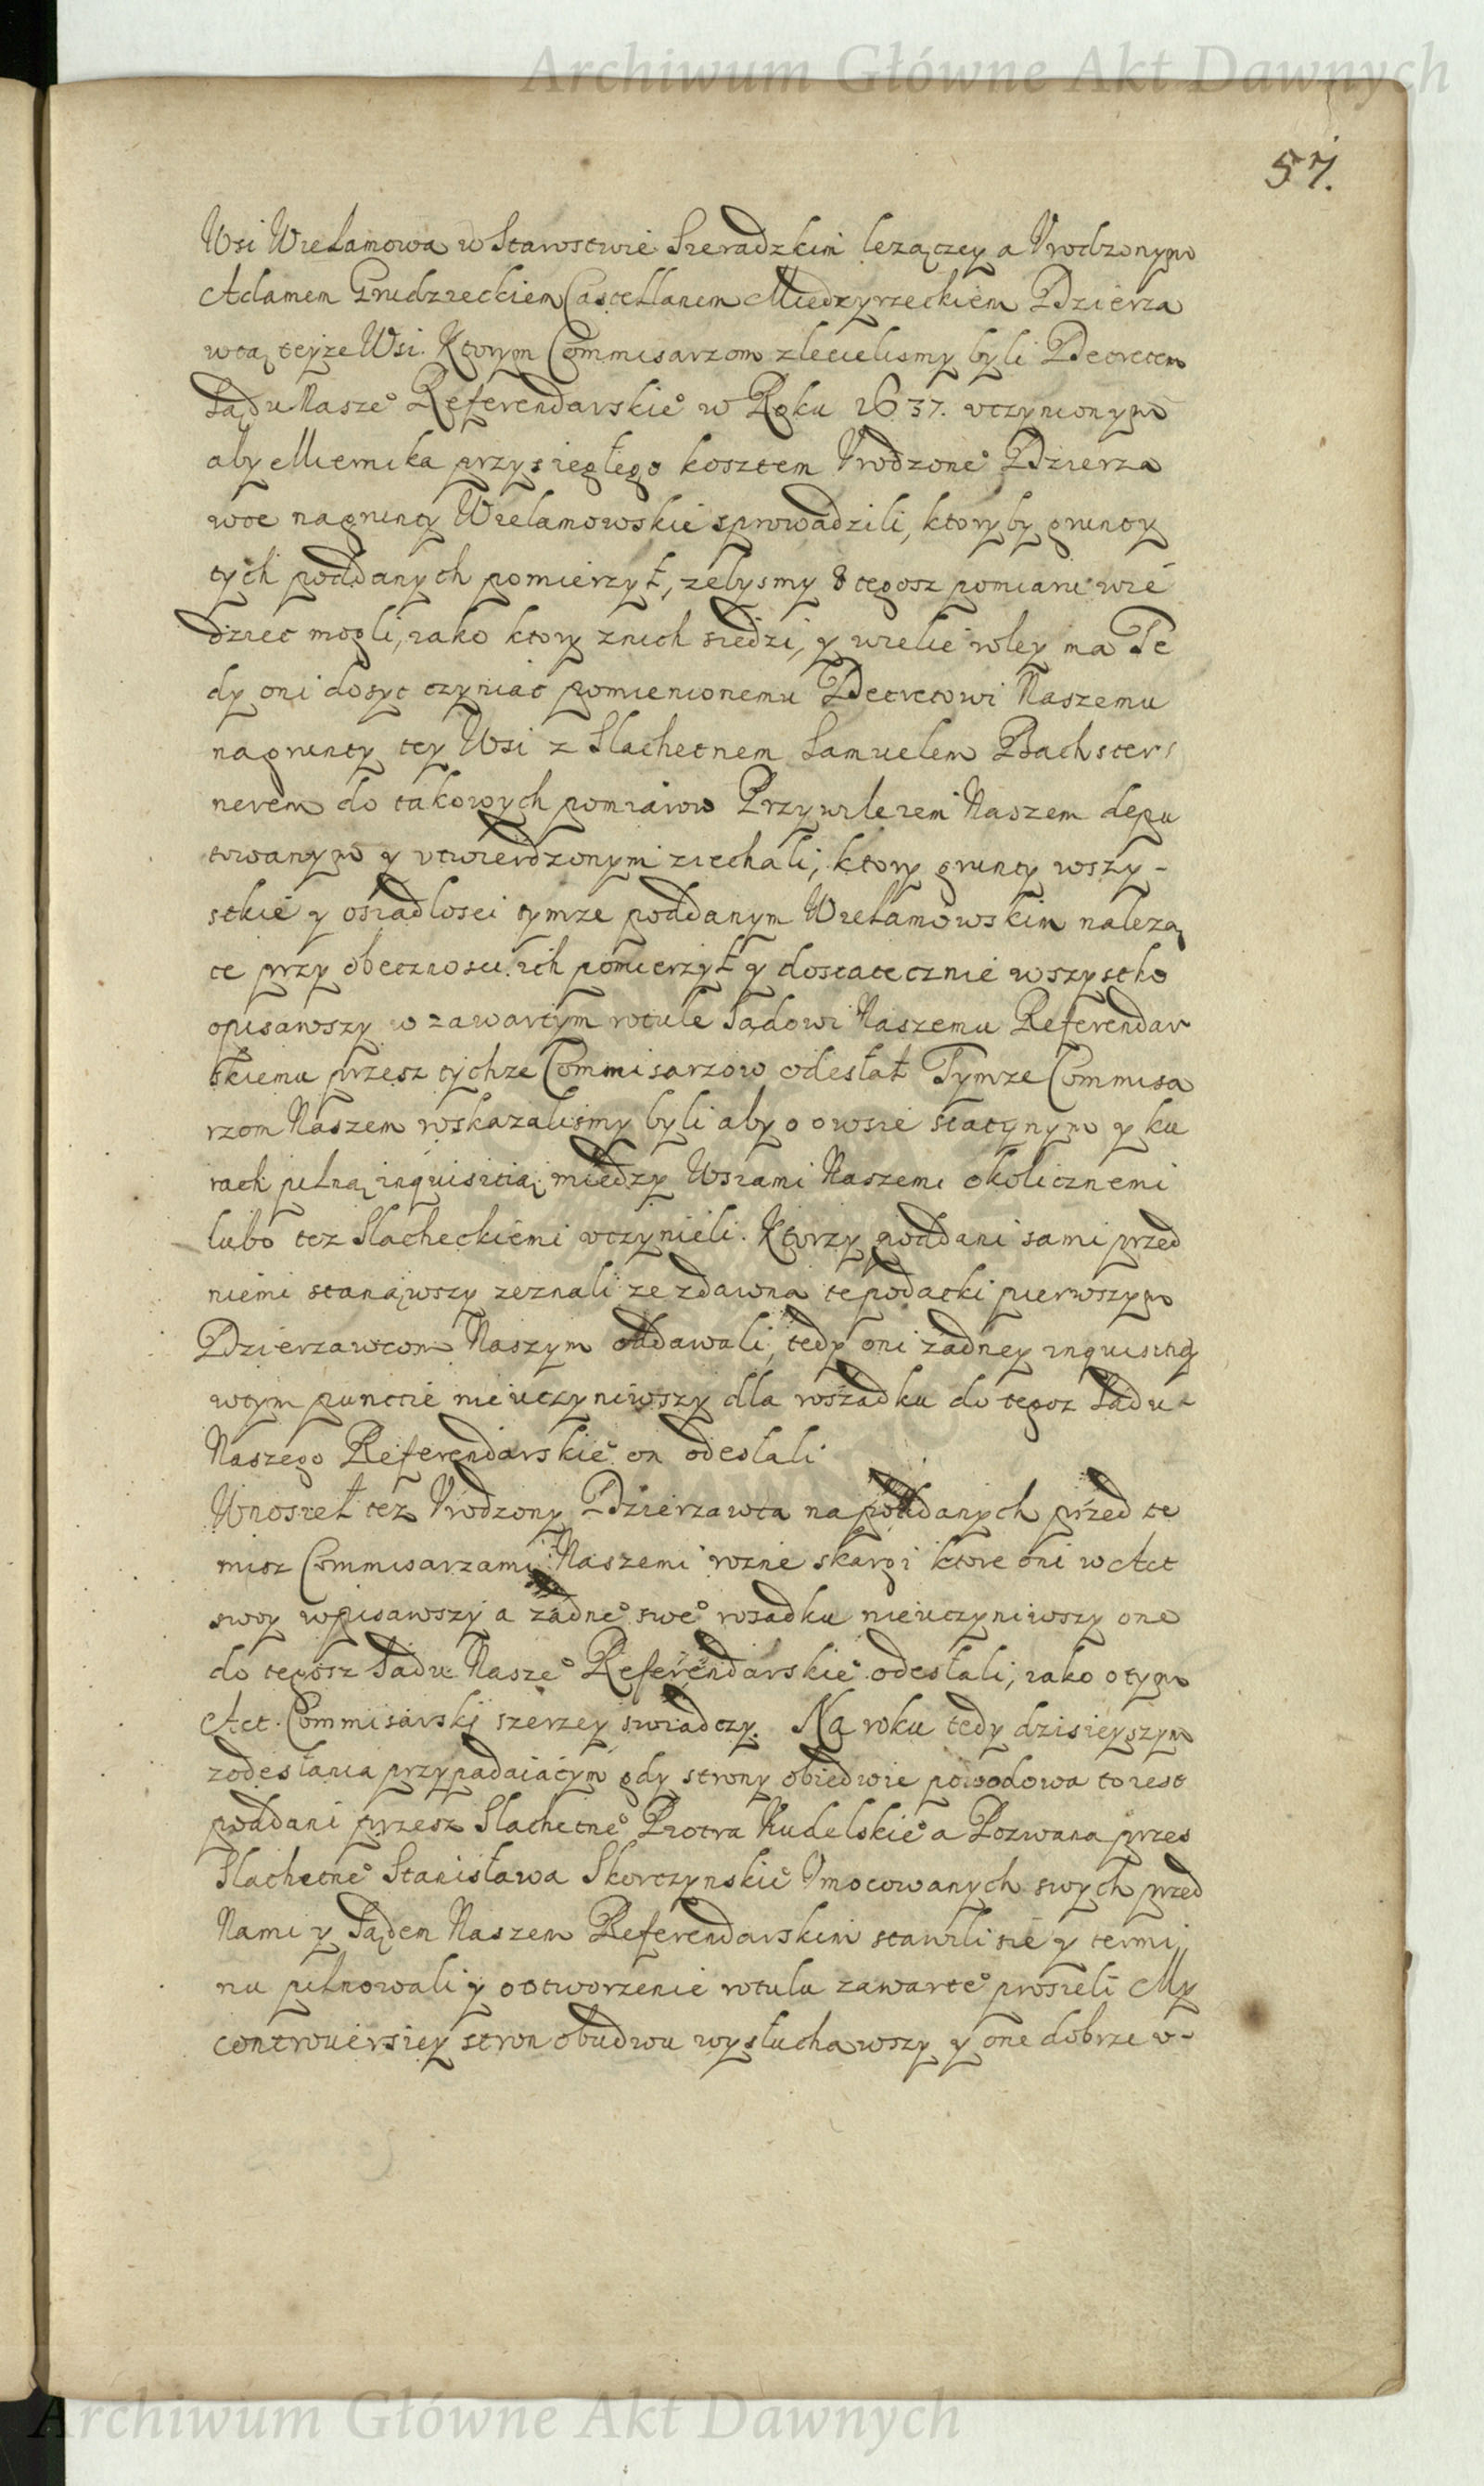 Archiwum Główne Akt Dawnych
57.
Wsi Wielamowa w Starostwie Sieradzkim lezączey a Vrodzonym
Adamem Grudzieckiem Castellanem Miedzyrzeckiem Dzierza
wcą teyze Wsi. Ktorym Commisarzom zlecielismy byli Decretem
Sądu Nasze° Referendarskie° w Roku 1637. vczynionym
aby Miernika przysięgłego kosztem Vrodzone° Dzierza
wce na grunty Wielamowskie sprowadzili, ktoryby grunty
tych poddanych pomierzył, zebysmy z tegosz pomiaru wie
dziec mogli, iako ktory znich siedzi, y wielie roley ma Te
dy oni dosyc czyniac pomienionemu Decretowi Naszemu
na grunty tey Wsi z Slachetnem Samuelem Bachster
nerem do takowych pomiarow Przywileiem Naszem depu
towanym y vtwierdzonym ziechali, ktory grunty wszy-
stkie y osiadlosci tymze poddanym Wielamowskim nalezą
ce przy obecznosci ich pomierzył y dostatecznie wszystko
opisawszy w zawartym rotule Sądowi Naszemu Referendar
skiemu przesz tychze Commisarzow odesłał Tymze Commisa
rzom Naszem wskazalismy byli aby o owsie stacynym y ku
rach pilną inquisitią między Wsiami Naszemi okolicznemi
lubo tez Slacheckiemi vczynieli. Ktorzy poddani sami przed
niemi stanąwszy zeznali ze zdawna te podatki pierwszym
Dzierzawcom Naszym oddawali, tedy oni zadney inquisitiey
w tym puncie nie vczyniwszy dla rosządku do tegoz Sądu
Naszego Referendarskie° on odesłali
Wnosieł tez Vrodzony Dzierzawca na poddanych przed te
misz Commisarzami Naszemi rozne skargi ktore oni w Act
swoy wpisawszy a zadne° swe° rosadku nieuczyniwszy one
do tegosz Sadu Nasze° Referendarskie° odesłali, iako o tym
Act Commisarski szerzey swiadczy. Na roku tedy dzisieyszym
z odesłania przypadaiącym gdy strony obiedwie powodowa to iest
poddani przesz Slachetne° Piotra Rudelskie° a Pozwana przes
Slachetne° Stanisława Skorczynskie° Vmocowanych swych przed
Nami y Sądem Naszem Referendarskim stawili sie y termi
nu pilnowali y o otworzenie rotulu zawarte° prosieli My
controuersiey stron obudwu wysłuchawszy y one dobrze v-
Archiwum Główne Akt Dawnych